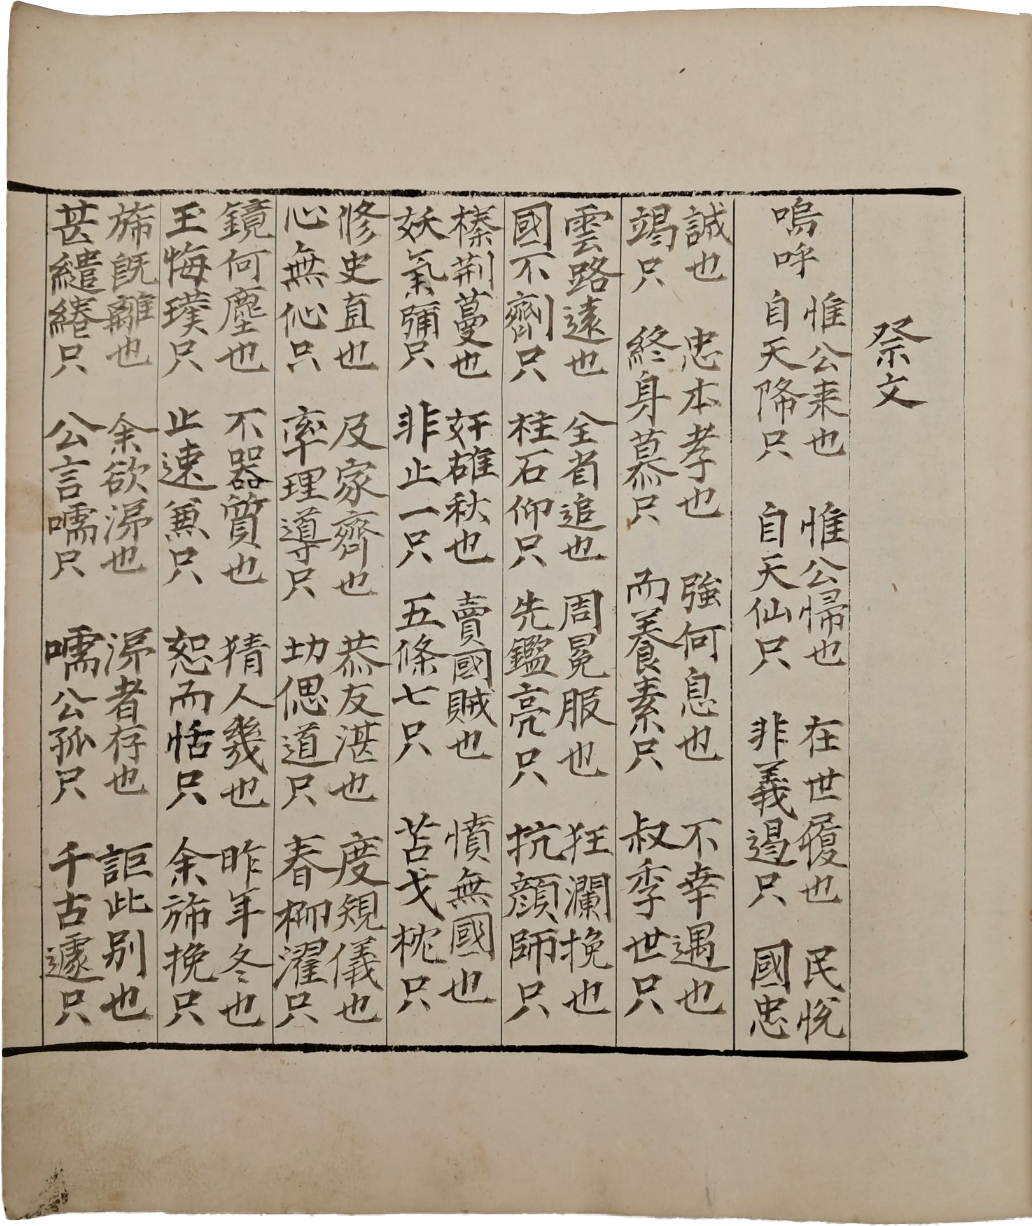 祭文
嗚呼
惟公来也 惟公帰也 在世履也 民悅
自天降只 自天仙只 非義遏只 國忠
誠也 忠本孝也 強何息也 不幸遇也
竭只 終身慕只 而養素只 叔季世只
雲路遠也 全省追也 周冕服也 狂瀾挽也
國不劑只 柱石仰只 先鑑亮只 抗顔師只
榛荆蔓也 奸雄秋也 賣國賊也 憤無國也
妖氣彌只 非止一只 五條七只 苫戈枕只
修史直也 及家齊也 恭友湛也 度規儀也
心無他只 率理導只 切偲道只 春柳濯只
鏡何塵也 不器質也 猜人幾也 昨年冬也
玉悔璞只 止速兼只 恕而恬只 余旆挽只
旆旣離也 余欲涕也 涕者存也 詎此別也
甚繾綣只 公言嚅只 嚅公孤只 千古遽只